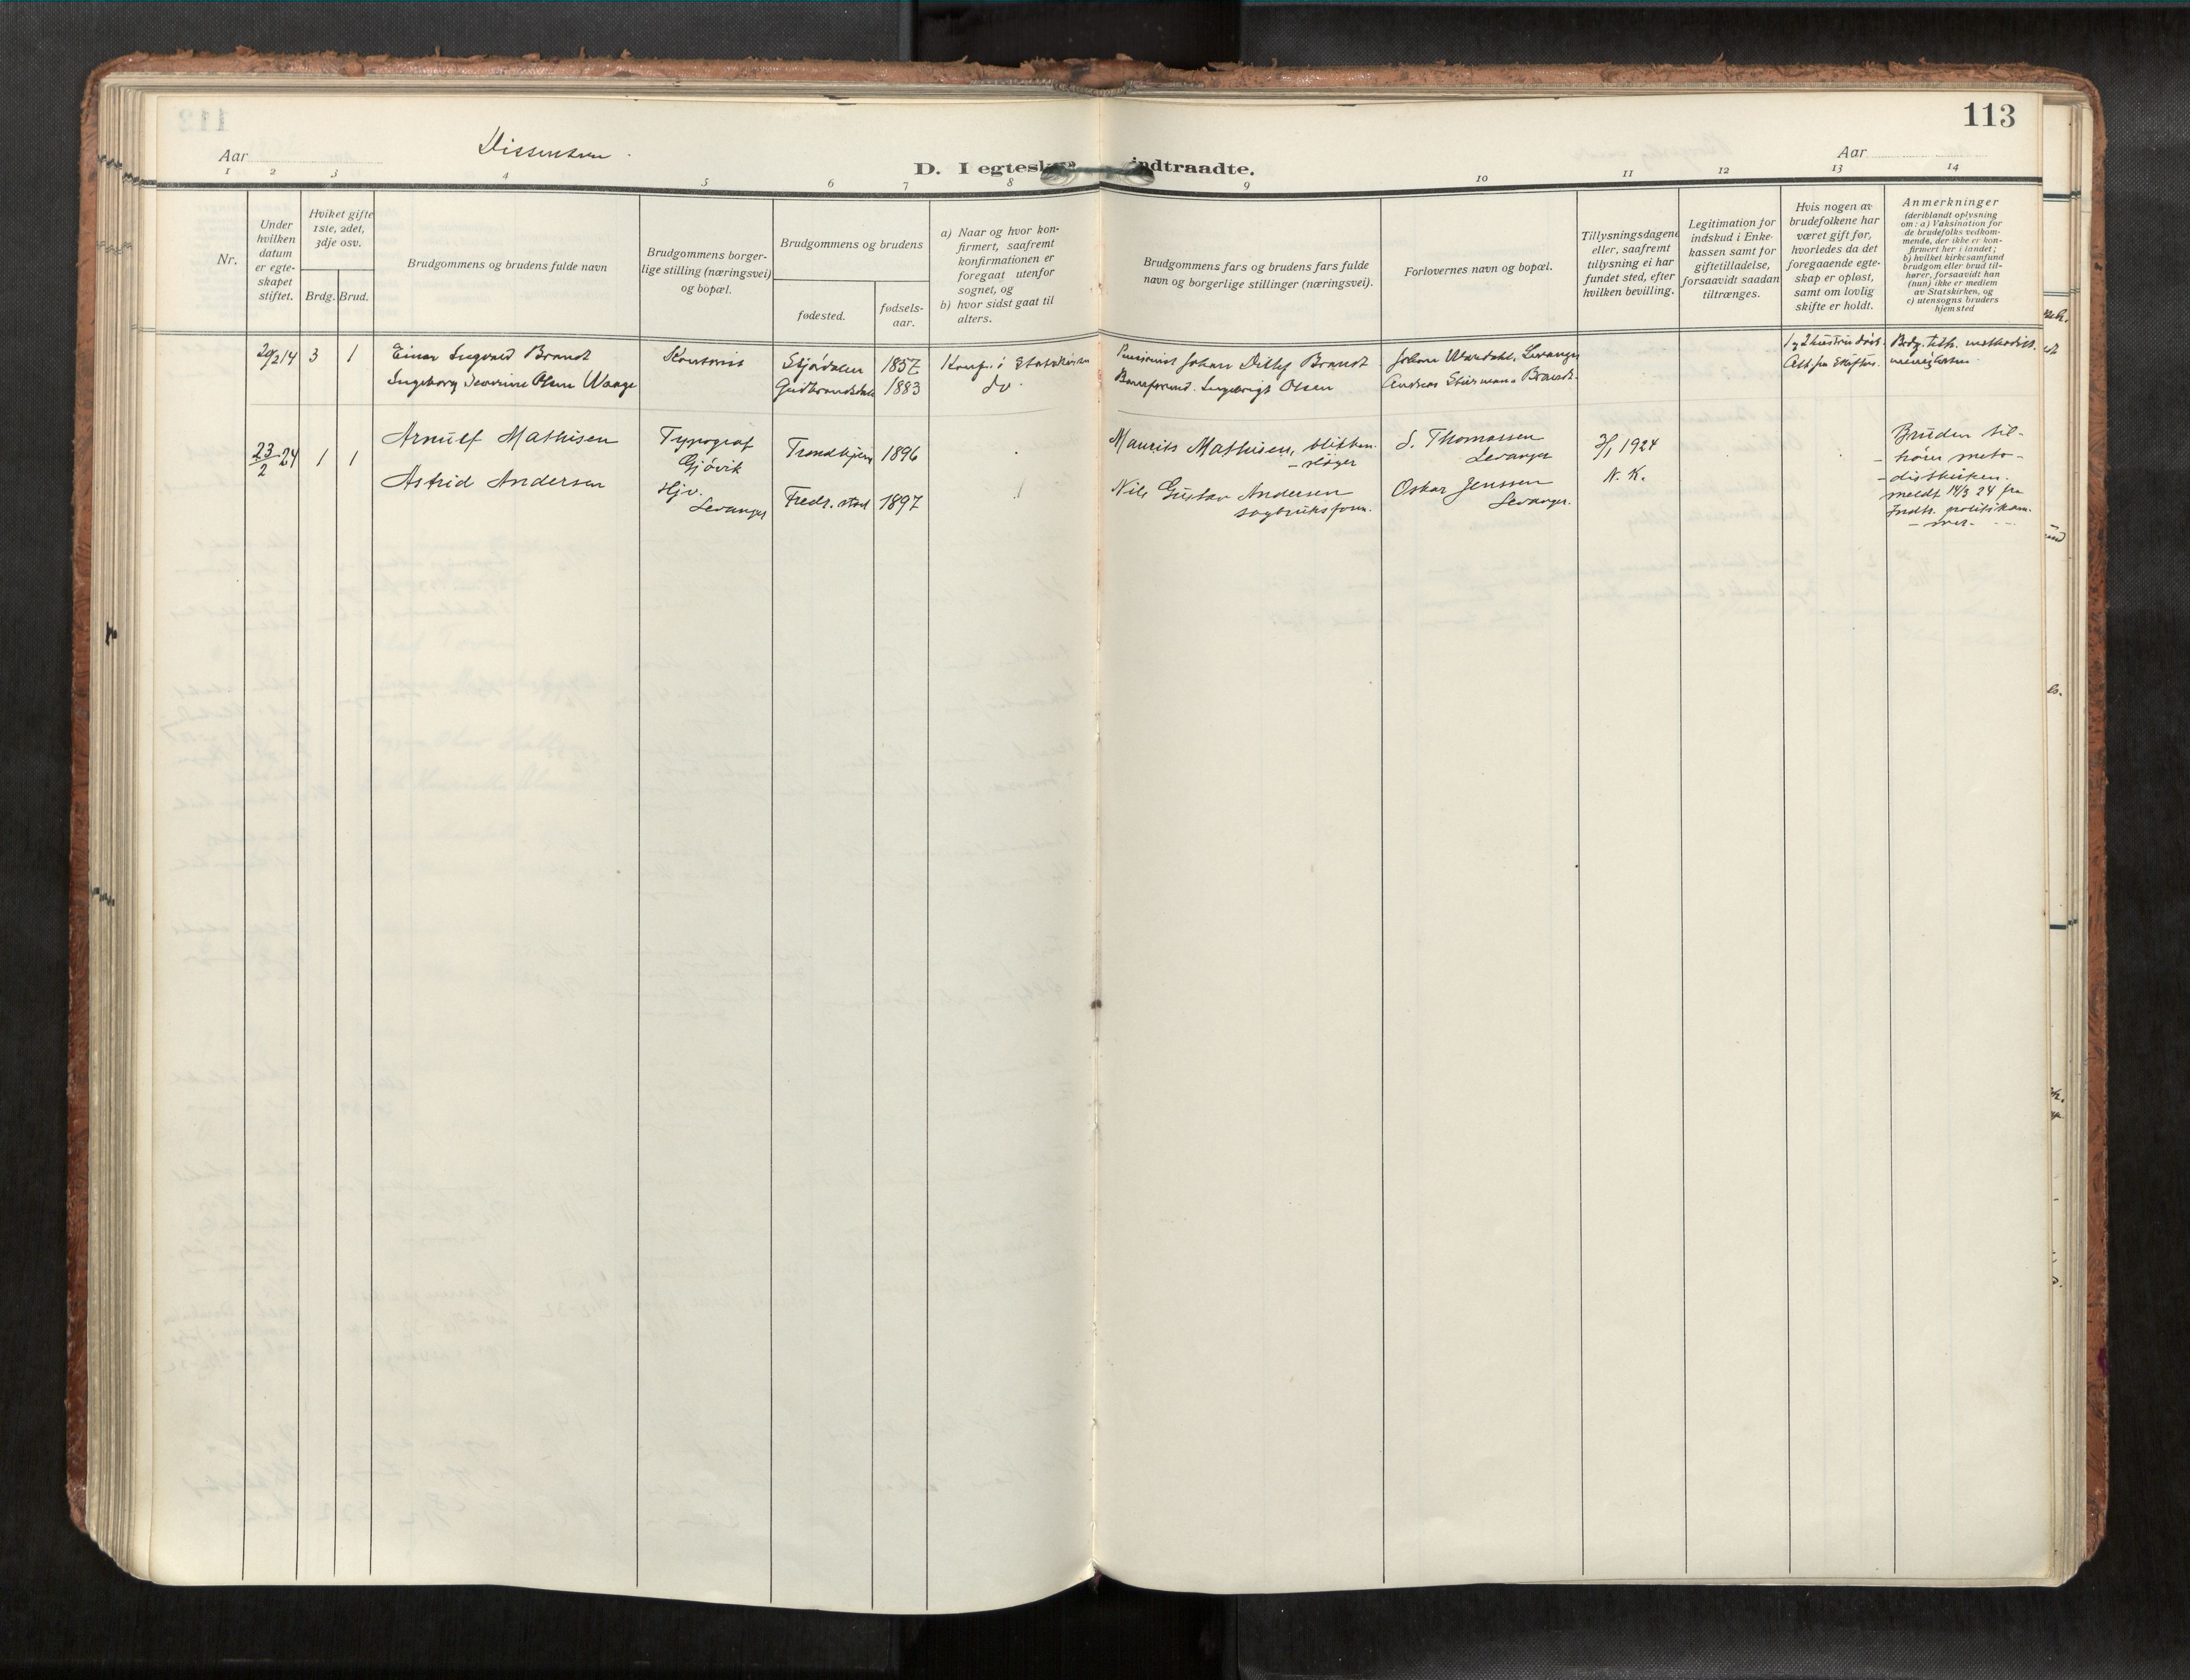 113
Dissentere.
Aar
Aar
D. I egtesk indtraadte.
1 2 3 4 5 6 7 8 9 10 11 12 13 14
Nr.
Under
hvilken
datum
er egte-
skapet
stiftet.
Hvilket gifte
1ste, 2det,
3dje osv.
Brdg. Brud.
Brudgommens og brudens fulde navn
Brudgommens borger-
lige stilling (næringsvei)
og bopæl.
Brudgommens og brudens
fødested.
fødsels-
aar.
a) Naar og hvor kon-
firmert, saafremt
konfirmationen er
foregaat utenfor
sognet, og
b) hvor sidst gaat til
alters.
Brudgommens fars og brudens fars fulde
navn og borgerlige stillinger (næringsvei).
Forlovernes navn og bopæl.
Tillysningsdagene
eller, saafremt
tillysning ei har
fundet sted, efter
hvilken bevilling.
Legitimation for
indskud i Enke-
kassen samt for
giftetilladelse,
forsaavidt saadan
tiltrænges.
Hvis nogen av
brudefolkene har
været gift før,
hvorledes da det
foregaaende egte-
skap er opløst,
samt om lovlig
skifte er holdt.
Anmerkninger
(deriblandt oplysning
om: a) Vaksination for
de brudefolks vedkom-
mende, der ikke er kon-
firmert her i landet;
b) hvilket kirkesamfund
brudgom eller brud til-
hører, forsaavidt han
(hun) ikke er medlem
av Statskirken, og
c) utensogns bruders
hjemsted
20/2 14 3 1
Einar Ingvald Brandt
Ingeborg Severine Olsen Waage
Kontorist
Stjørdalen 1857
Gudbrandsdalen 1883
Konf. i Statskirken
do.
Pensionist Johan Ditlef Brandt
Baneformd. Ingebrigt Olsen
Johan Wardahl, Levanger
Andreas Brandt.
1 og 2 hustru død.
Att. fra Skifter.
Brdg. tilh. methodist.
menigheten
23/2 24 1 1
Arnulf Mathisen
Astrid Andersen
Typograf
Gjøvik
Hjv.
Levanger
Trondhjem 1896
Fredr. stad 1897
Maurits Mathisen, blikken-
-slager
Nils Gustav Andersen
sagbruksform.
S. Thomassen
Levanger
Oskar Jenssen
Levanger.
3/1 1924
N. K.
Bruden til-
-hører meto-
-distkirken.
meldt 14/3 24 fra
Indh. politikam-
-mer.